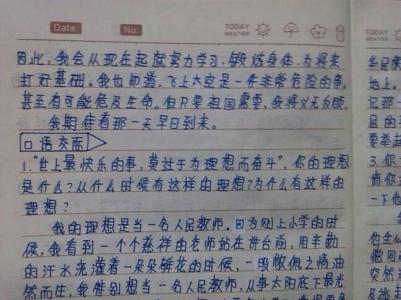 Date: No: TODAY WEATHER
因此,我会从现在起就努力学习,锻炼身体,为将来
打好基础。我也知道,飞上太空是一件非常危险的事,
甚至有可能危及生命。但只要祖国需要,我将义无反顾。
我期待着那一天早日到来。
口语交际
1."世上最快乐的事,莫过于为理想而奋斗"。你的理想
是什么?从什么时候有这样的理想?为什么有这样的
理想?
我的理想是当一名人民教师。因为刚上小学的时
候,我看到一个个慈祥的老师站在讲台前,用辛勤
的汗水浇灌着一朵朵鲜花的时候,一股敬佩之情油
然而生,我特别想当一名人民教师,从事太阳底下最光
TODAY
WEATHER
地上。
记那一
3.你
肯你
一下他
突然